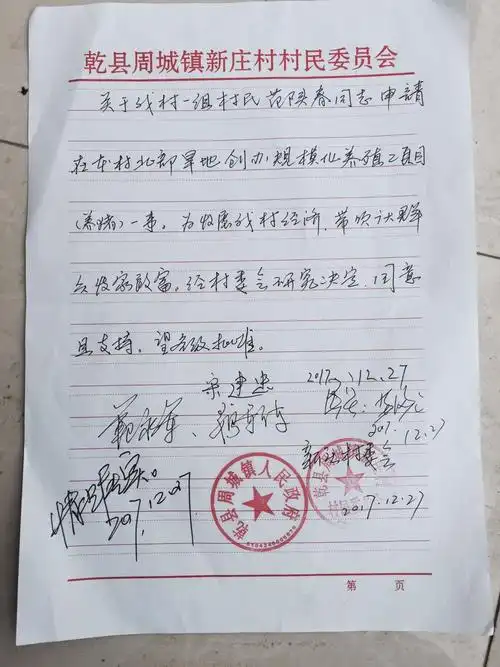 乾县周城镇新庄村村民委员会
关于我村一组村民范陕春同志申請
在本村北部旱地创办规模化养殖项目
(养猪)一事。为发展我村经济,带领
发家致富,经村委会研究决定,同意
且支持,望 批准。
2017.12.27
2017.12.27
新庄村委会
情况属实。
2017.12.27
2017.12.27
乾县周城镇人民政府
第 页